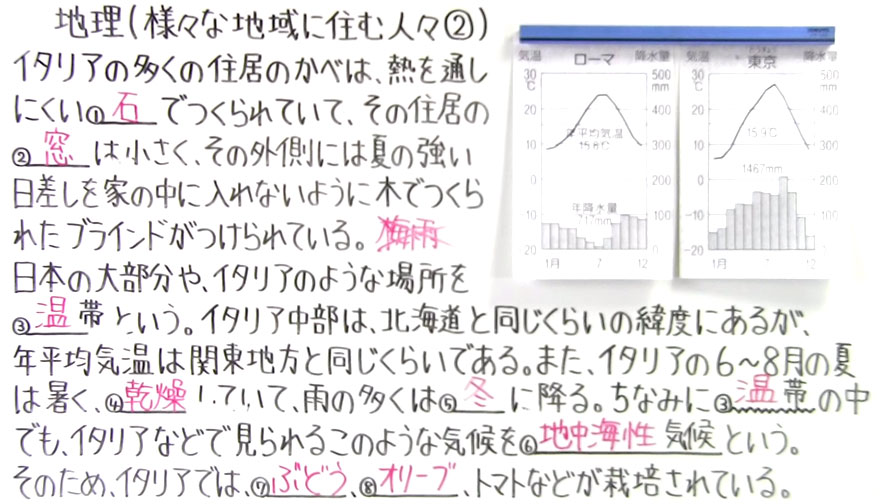 地理(様々な地域に住む人々②)
イタリアの多くの住居のかべは、熱を通し
にくい①石でつくられていて、その住居の
②窓は小さく、その外側には夏の強い
日差しを家の中に入れないように木でつくら
れたブラインドがつけられている。梅雨
日本の大部分や、イタリアのような場所を
③温帯という。イタリア中部は、北海道と同じくらいの緯度にあるが、
年平均気温は関東地方と同じくらいである。また、イタリアの6〜8月の夏
は暑く、④乾燥していて、雨の多くは⑤冬に降る。ちなみに③温帯の中
でも、イタリアなどで見られるこのような気候を⑥地中海性気候という。
そのため、イタリアでは、⑦ぶどう、⑧オリーブ、トマトなどが栽培されている。
気温 ローマ 降水量
30 500
℃ mm
20 400
10 300
0 200
-10 100
-20 0
年平均気温
15.6℃
年降水量
717mm
1月 7 12
気温 東京 降水量
30 500
℃ mm
20 400
10 300
0 200
-10 100
-20 0
15.9℃
1467mm
1月 7 12